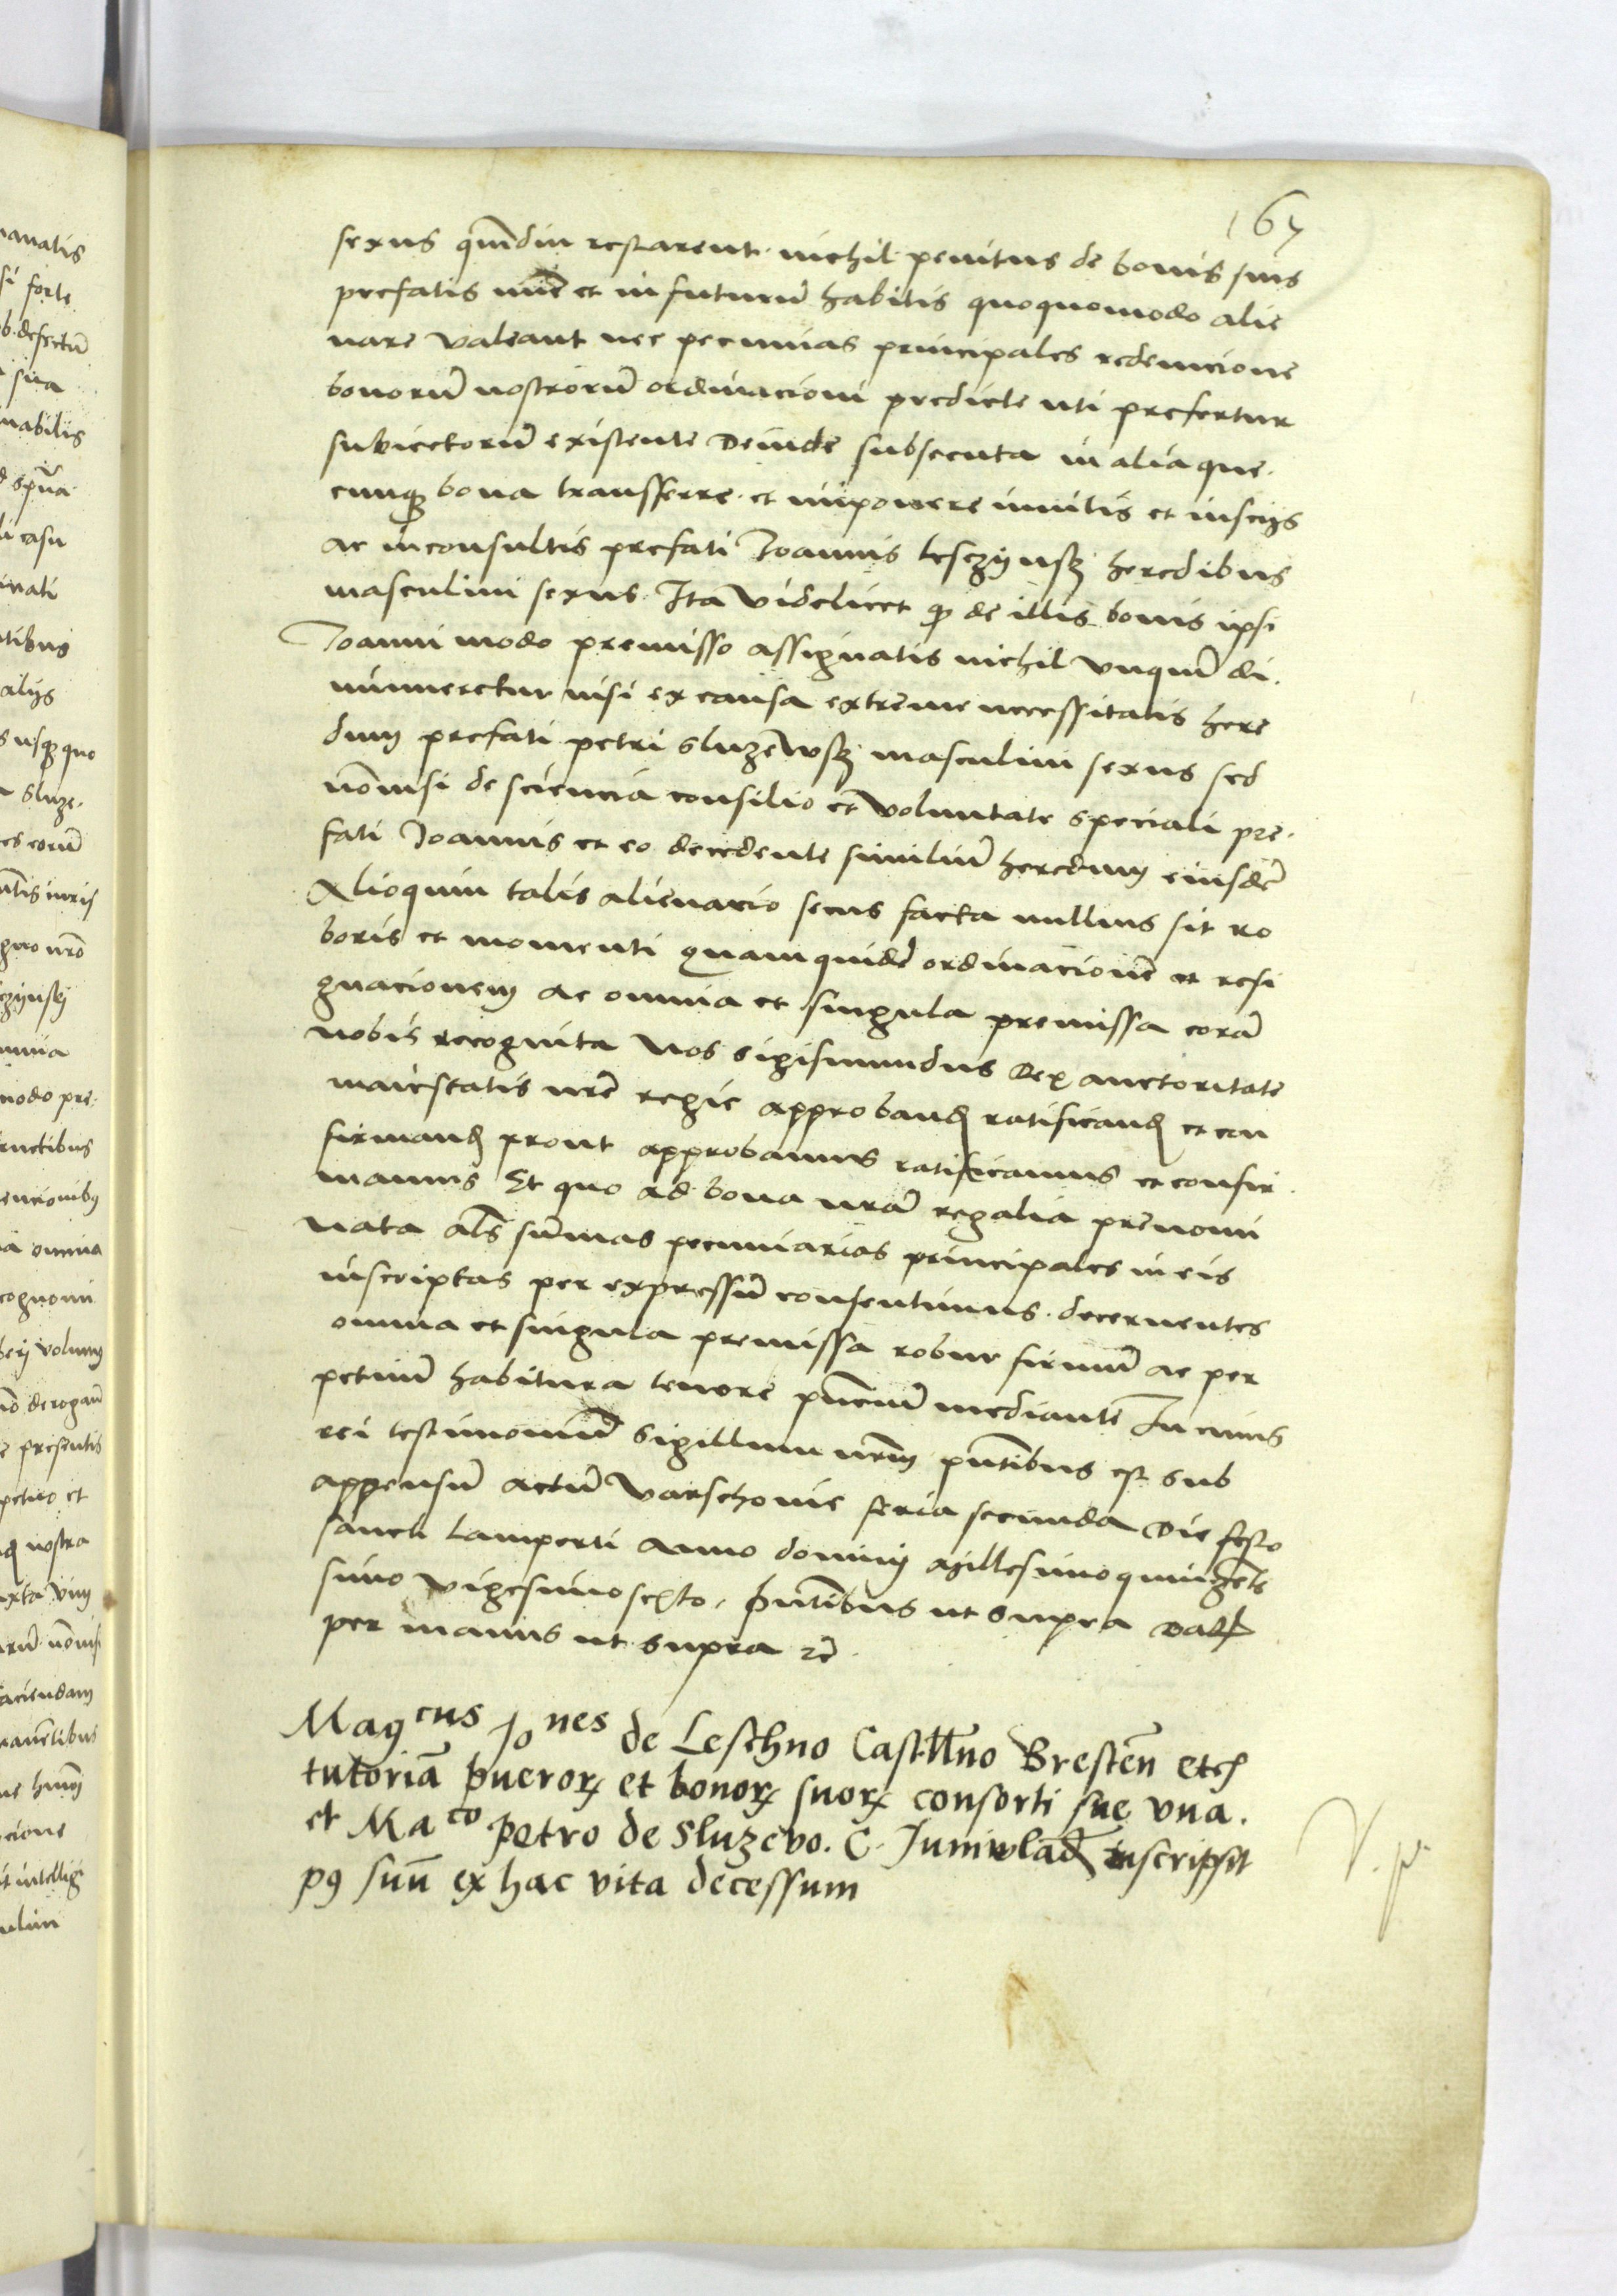 167
sexus qm̄diu restarent nichil penitus de bonis suis
prefatis nūc et in futurū habitis quoquomodo alie
nare valeant nec pecunias principales redemcione
bonorū nostrorū ordinacioni predicte uti prefertur
subiectorū existente deinde subsecuta in alia que
cunq₃ bona transferre et imponere invitis et insciis
ac inconsultis prefati Joannis leszczynsk₃ heredibus
masculini sexus Ita videlicet q₃ de illis bonis ipsi
Joanni modo premisso assignatis nichil vnquā di
minueretur nisi ex causa extreme necessitatis here
dum prefati petri Sluzewsk₃ masculini sexus sed
nōnisi de sciencia consilio et voluntate speciali pre
fati Joannis et eo decedente similiū heredum eiusdē
Alioquin talis alienacio secus facta nullius sit ro
boris et momenti quam quidē ordinacionē et resi
gnacionem ac omnia et singula premissa corā
nobis recognita Nos Sigismundus Rex auctoritate
maiestatis nrē regie approband ratificand et con
firmand prout approbamus ratificamus et confir
mamus Et quo ad bona nrā regalia prenomi
nata als sūmas pecuniarias principales in eis
inscriptas per expressū consentimus decernentes
omnia et singula premissa robur firmū ac per
petuū habitura tenore pn̄ciū mediante In cuius
rei testimoniū Sigillum nrm̄ pn̄tibus est sub
appensū actū Varschouie feria secunda die festo
sancti Lamperti Anno domini Millesimo quingēte
simo vigesimo sexto. Pn̄tibus ut supra dat
per manus ut supra rē
Magcus Jones de Leschno Castllno Brestēn etc
tutoriā pueror₃ et bonor₃ suor₃ consorti sue vna
et Maco Petro de Sluzevo. C. Juniwlad inscripsit
p9 suū ex hac vita decessum
V. p.